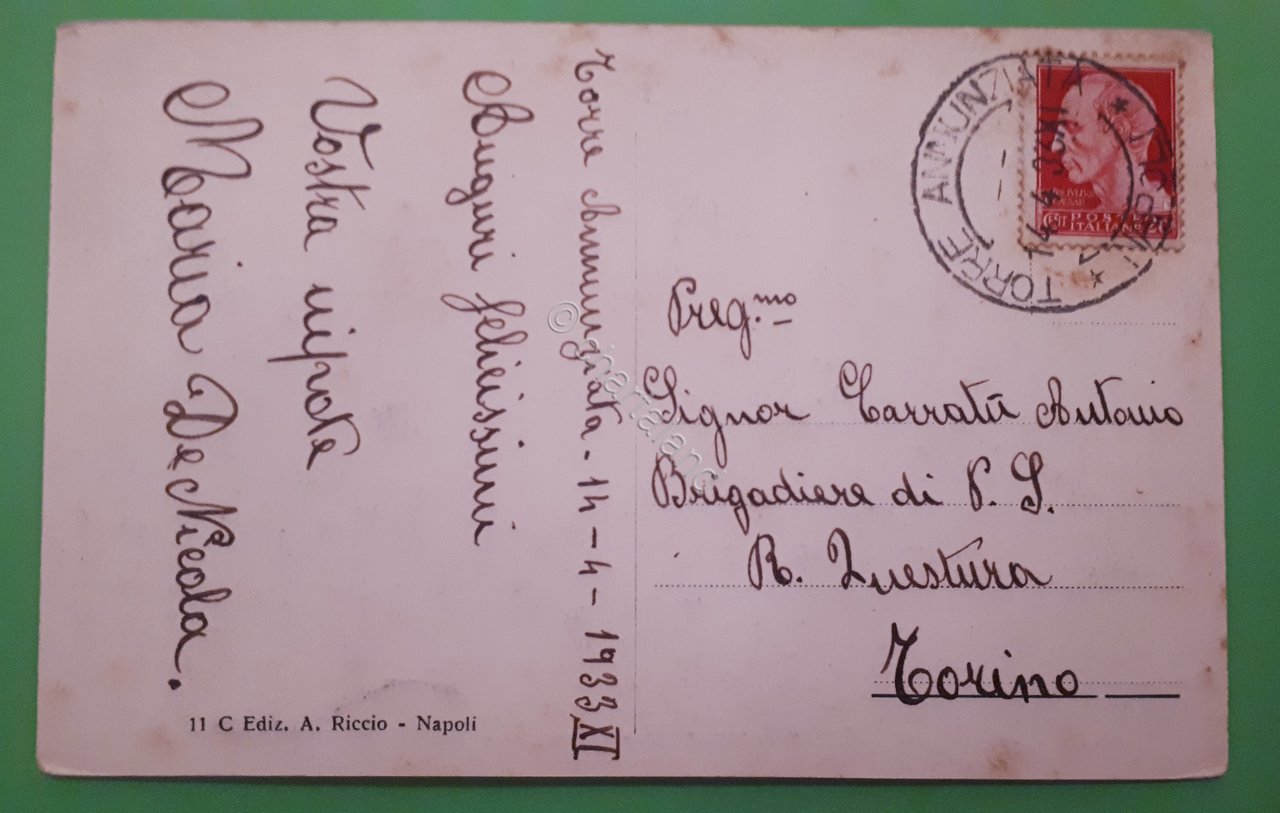 Torre Annunziata - 14 - 4 - 1933 XI
Auguri felicissimi
Vostra nipote
Maria De Nicola.
11 C Ediz. A. Riccio - Napoli
TORRE ANNUNZIATA
* (NAPOLI) *
14.4.33.XI
IVLIVS
CAESAR
POSTE
ITALIANE
20
Preg.mo
Signor Carratù Antonio
Brigadiere di P. S.
R. Questura
Torino
© chartaland